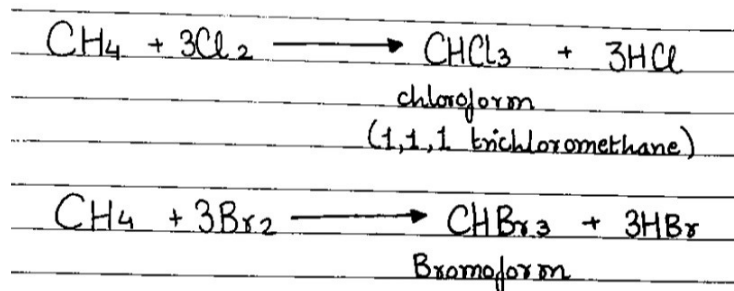 CH4 + 3Cl2 ⟶ CHCl3 + 3HCl
chloroform
(1,1,1 trichloromethane)
CH4 + 3Br2 ⟶ CHBr3 + 3HBr
Bromoform